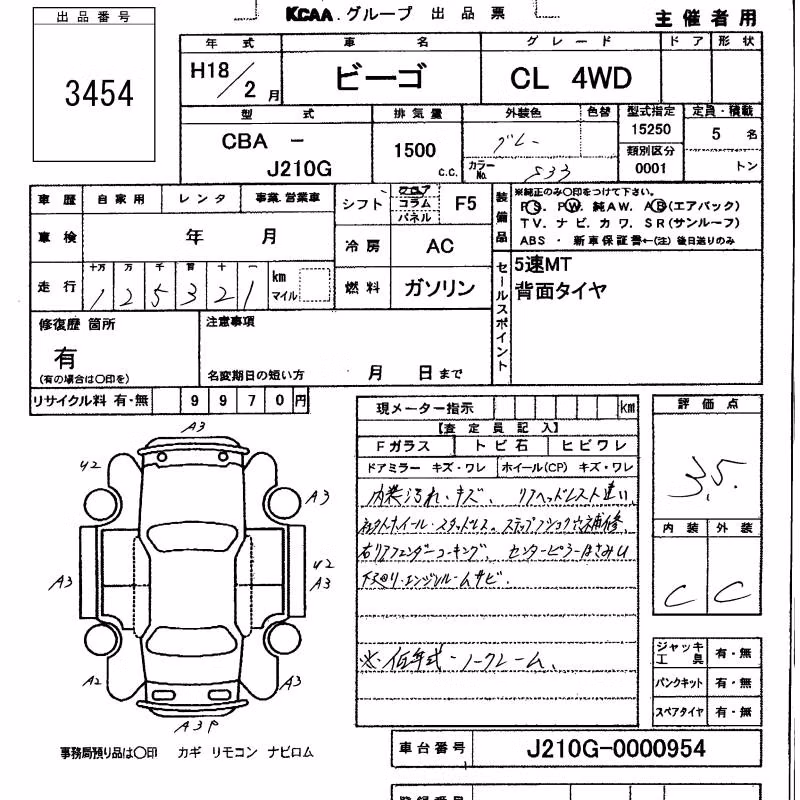 KCAA.グループ 出品票
主催者用
出品番号
3454
年式 車名 グレード ドア 形状
H18/2月 ビーゴ CL 4WD
型式 排気量 外装色 色替 型式指定 定員・積載
CBA - J210G 1500 c.c. グレー 15250 5 名
カラーNo. S33 類別区分 0001 トン
車歴 自家用 レンタ 事業.営業車
シフト フロア コラム パネル F5
装備品 ※純正のみ○印をつけて下さい。
PS. PW. 純AW. AB(エアバック)
TV. ナビ. カワ. SR(サンルーフ)
ABS ・ 新車保証書←(注) 後日送りのみ
車検 年 月
冷房 AC
走行 十万 万 千 百 十 一
1 2 5 3 2 1 km マイル
燃料 ガソリン
セールスポイント
5速MT
背面タイヤ
修復歴 箇所
有
(有の場合は○印を)
注意事項
名変期日の短い方 月 日まで
リサイクル料 有・無 9970円
現メーター指示 km
【査定員記入】
Fガラス トビ石 ヒビワレ
ドアミラー キズ・ワレ ホイール(CP) キズ・ワレ
内装汚れ・キズ、リアヘッドレスト違い、
ホイール・スタッドレス。ステップ 穴補修、
右リアフェンダーコーキング、センターピラーはさみ
下廻り・エンジンルームサビ.
※.低年式・ノークレーム、
評価点
3.5
内装 外装
C C
ジャッキ工具 有・無
パンクキット 有・無
スペアタイヤ 有・無
A3
U2
A3
A3
U2
A3
A2
A3
A3P
事務局預り品は○印 カギ リモコン ナビロム
車台番号 J210G-0000954